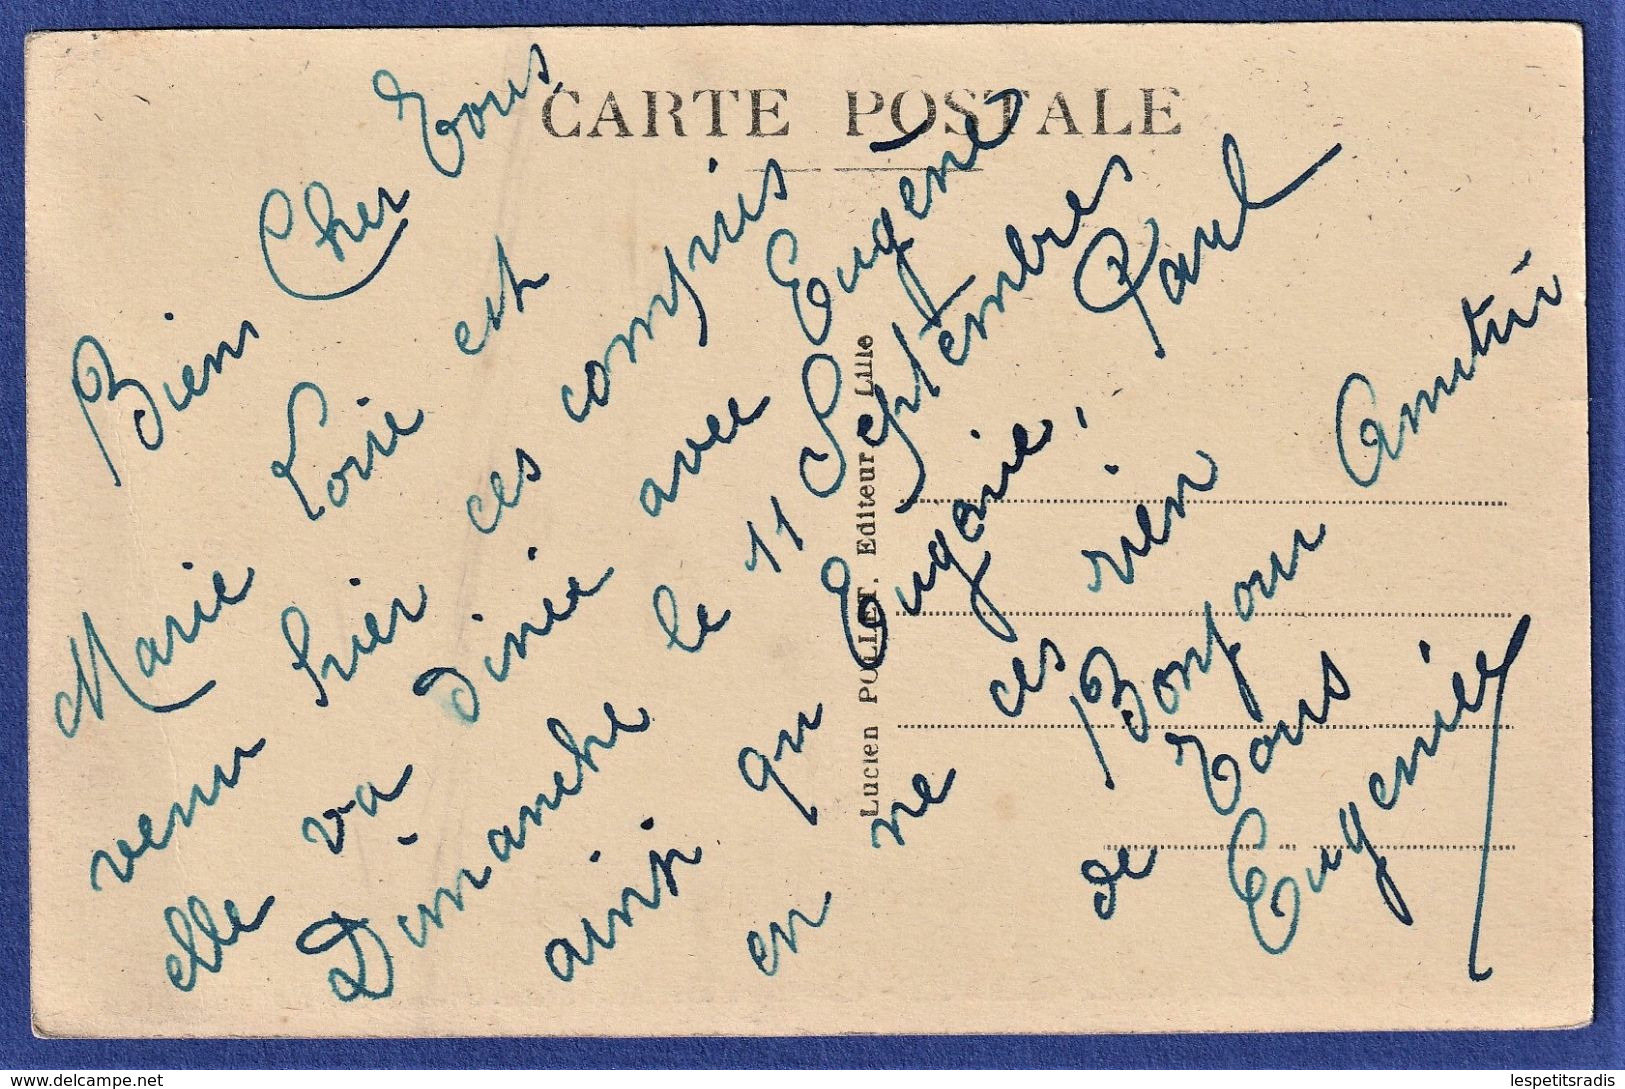 CARTE POSTALE
Bien Cher Tous
Marie Loire est
venu hier ces compris
elle va dinée avec Eugène
Dimanche le 11 Septembres
ainsi qu Eugénie, Paul
en ne ces rien
Bonjour Amitii
de Tous
Eugenie
Lucien POLLET. Editeur Lille
lespetitsradis
delcampe.net